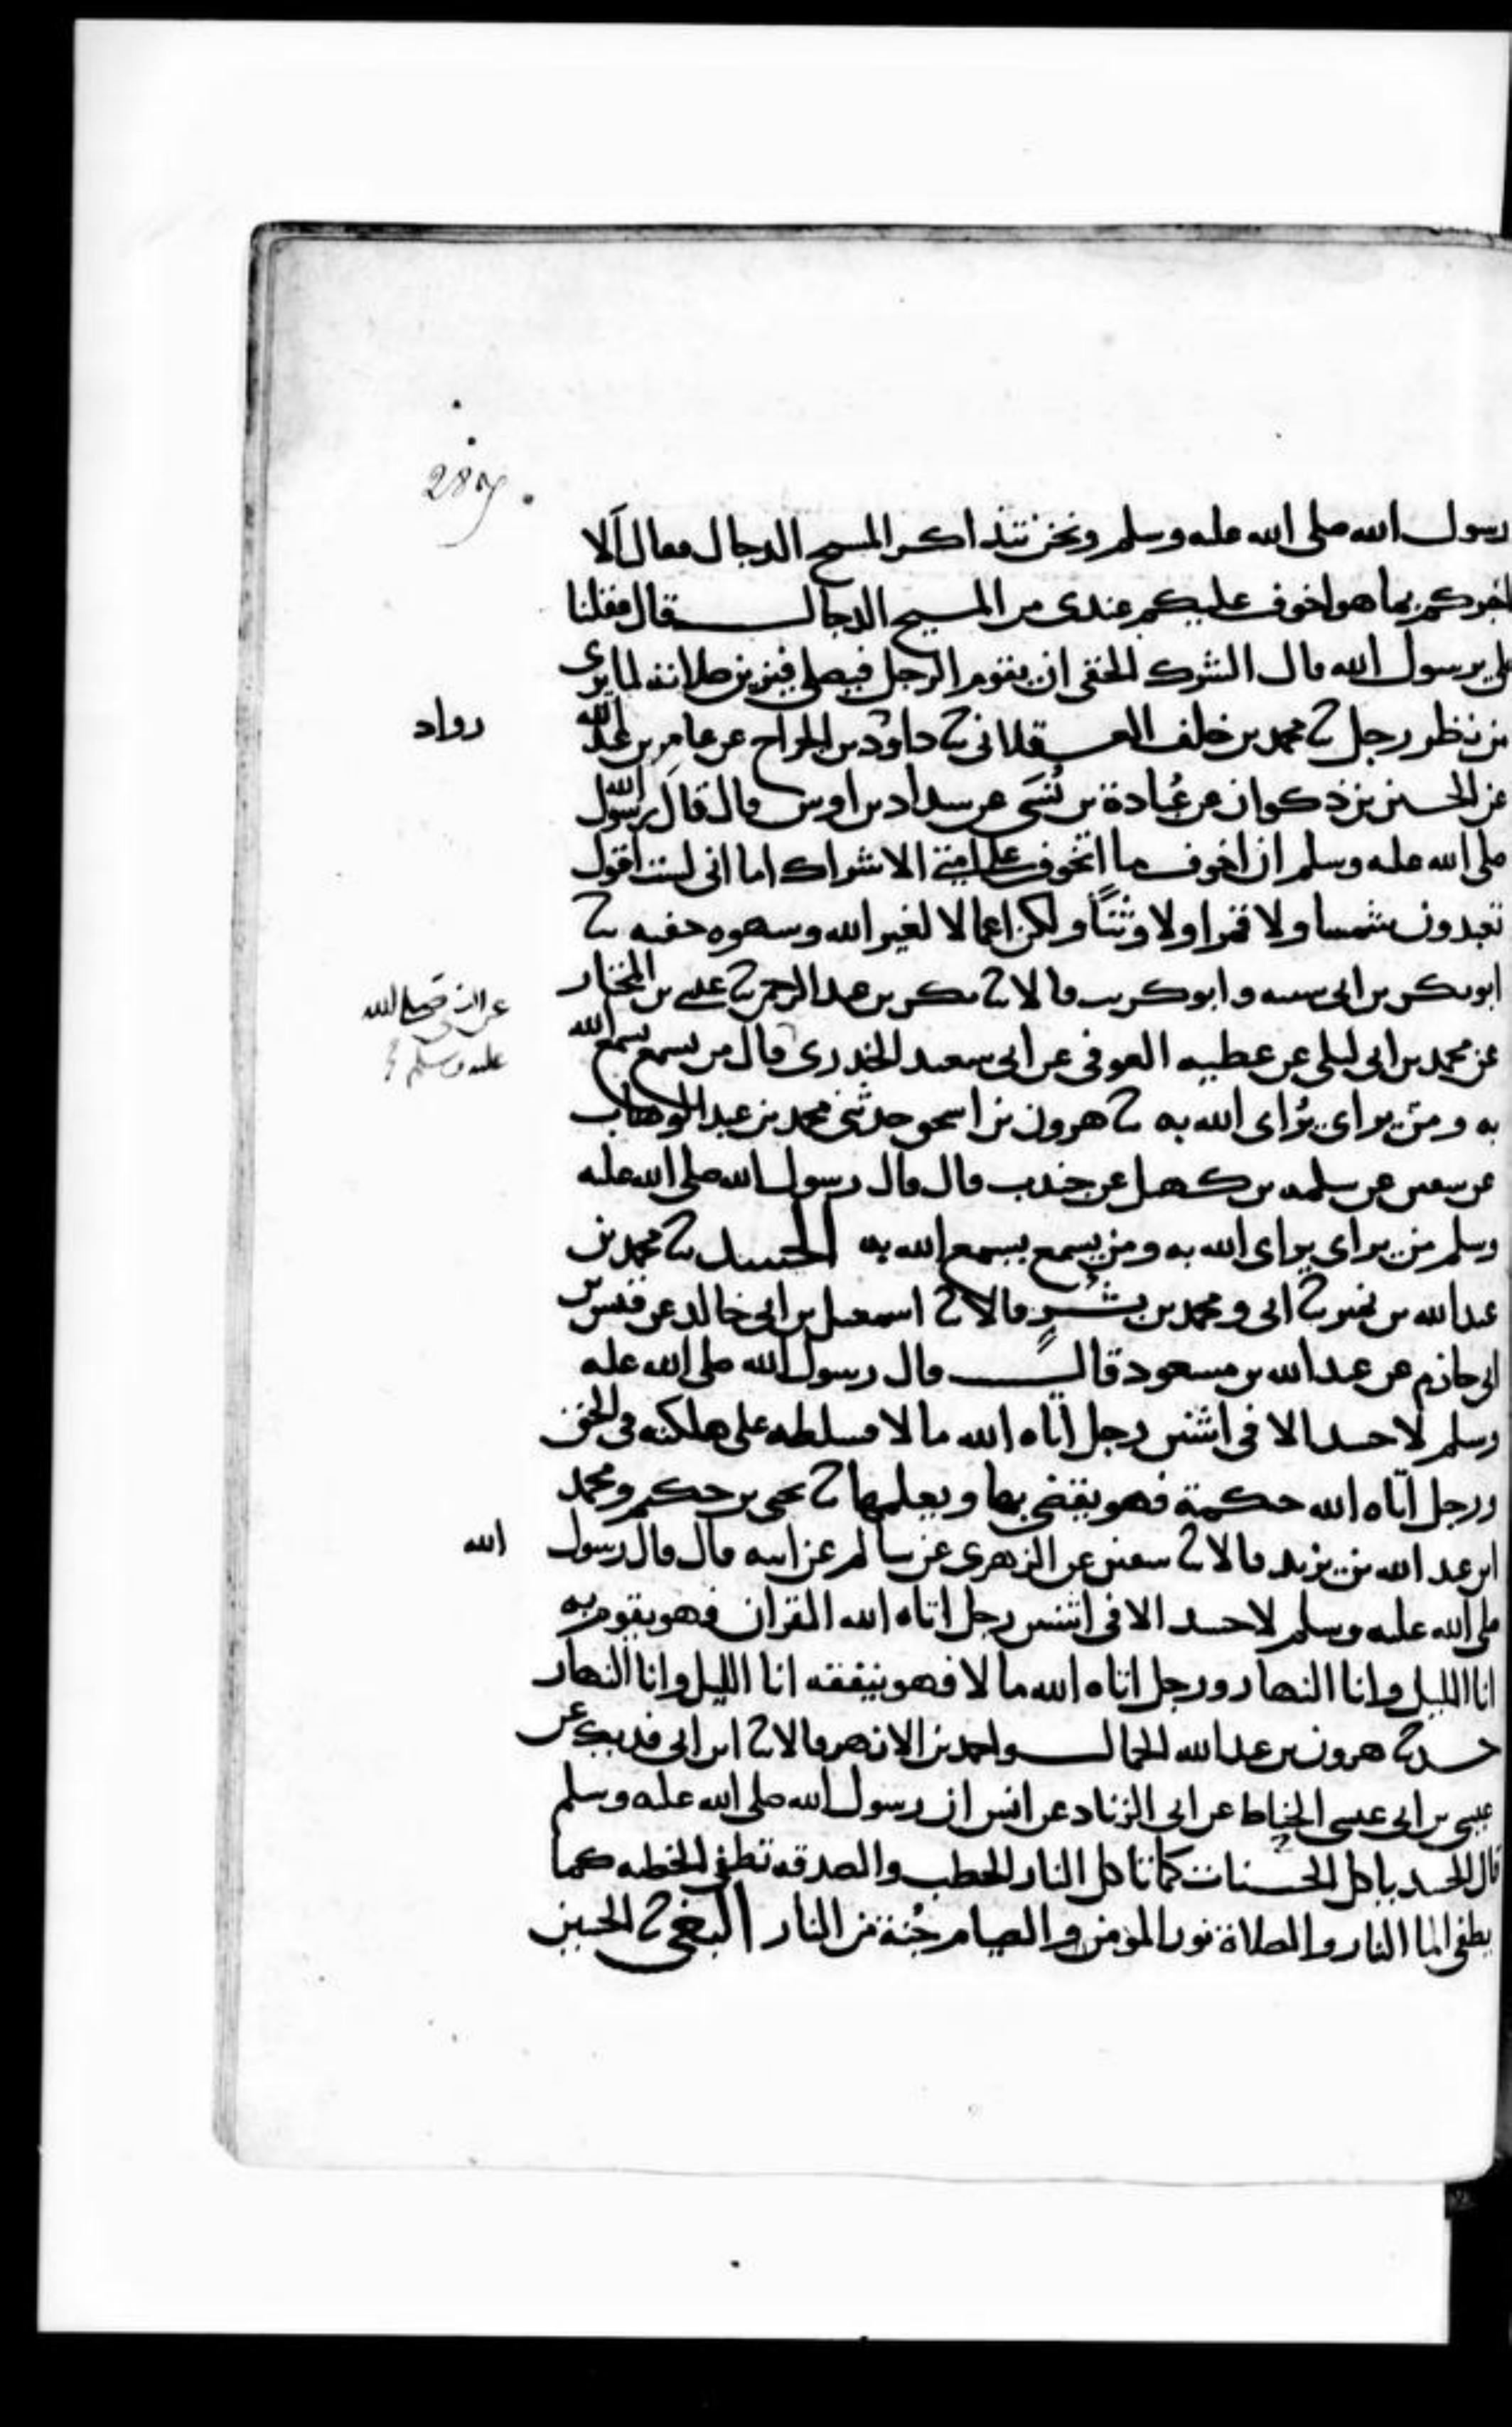 287
رسول الله صلى الله عليه وسلم ونحن نتذاكر المسيح الدجال فقال ألا
اخبركم بما هو اخوف عليكم عندي من المسيح الدجال قال فقلنا
بلى يرسول الله قال الشرك الخفي ان يقوم الرجل فيصلي فيزين صلاته لما يرى
من نظر رجل ثنا محمد بن خلف العسقلاني ثنا داود بن الجراح عن عامر بن عبد الله
رواد
عن الحسن بن ذكوان عن عُبادة بن نُسَي عن شداد بن اوس قال قال رسول الله
صلى الله عليه وسلم ان اخوف ما اتخوف على امتي الاشراك اما اني لست اقول
تعبدون شمسا ولا قمرا ولا وثنًا ولكن اعمالا لغير الله وشهوه خفيه ثنا
ابو بكر بن ابي شيبه وابو كريب قالا ثنا بكر بن عبد الرحمن ثنا عيسى بن المختار
عن النبي صلى الله
عليه وسلم
عن محمد بن ابي ليلى عن عطيه العوفي عن ابي سعيد الخدري قال من يسمع يسمع الله
به ومن يراي يُراي الله به ثنا هرون بن اسحق حدثني محمد بن عبد الوهاب
عن سفين عن سلمه بن كهيل عن جندب قال قال رسول الله صلى الله عليه
وسلم من يراي يراي الله به ومن يسمع يسمع الله به الحسد ثنا محمد بن
عبد الله بن نمير ثنا ابي ومحمد بن بشرٍ قالا ثنا اسمعيل بن ابي خالد عن قيس بن
ابي حازم عن عبد الله بن مسعود قال قال رسول الله صلى الله عليه
وسلم لا حسد الا في اثنين رجل اتاه الله مالا فسلطه على هلكته في الحق
ورجل اتاه الله حكمة فهو يقضي بها ويعلمها ثنا يحيى بن حكيم ومحمد
ابن عبد الله بن يزيد قالا ثنا سفين عن الزهري عن سالم عن ابيه قال قال رسول
الله
صلى الله عليه وسلم لا حسد الا في اثنين رجل اتاه الله القران فهو يقوم به
انا الليل وانا النهار ورجل اتاه الله مالا فهو ينفقه انا الليل وانا النهار
حدثنا هرون بن عبد الله الحمال واحمد بن الازهر قالا ثنا ابن ابي فديك عن
عيسى بن ابي عيسى الحناط عن ابي الزناد عن انس ان رسول الله صلى الله عليه وسلم
قال الحسد ياكل الحسنات كما تاكل النار الحطب والصدقه تطفي الخطيه كما
يطفي الما النار والصلاة نور المؤمن والصيام جُنة من النار البغي ثنا الحسين